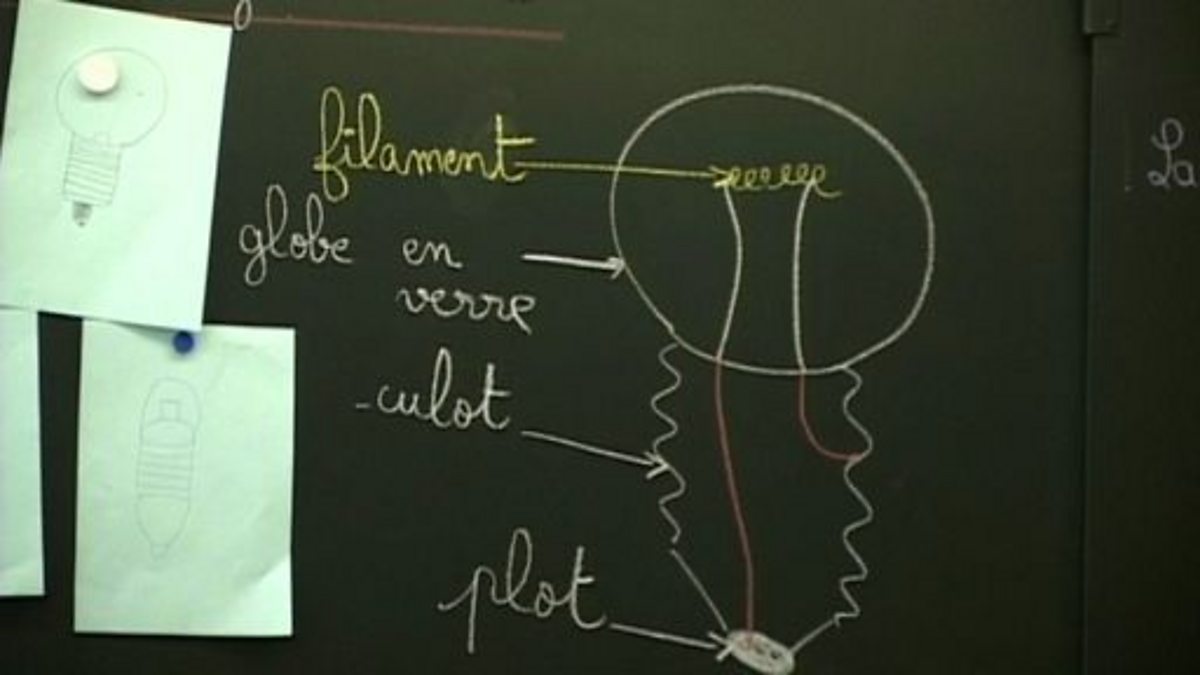 filament
globe en
verre
-culot
plot
La